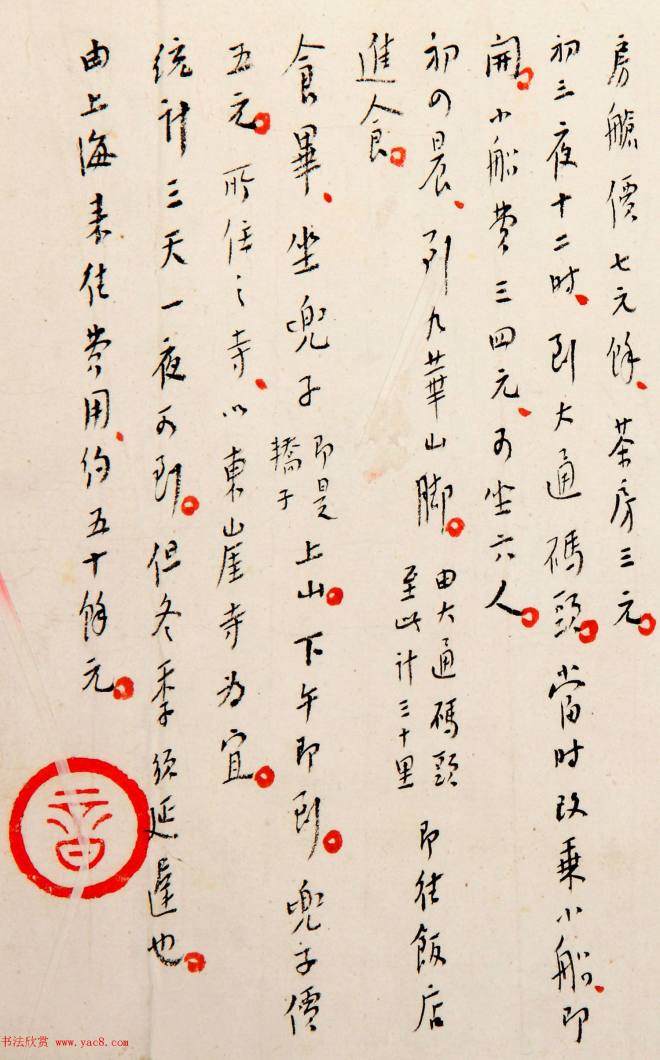 房艙價七元餘、茶房三元。
初三夜十二时、到大通碼頭。當时改乗小船、即
開。小船費三四元、可坐六人。
初四晨、到九華山脚。由大通碼頭至此計三十里 即往飯店
進人食。
食畢、坐兜子 即是轎子 上山。下午即到。兜子價
五元。所住之寺、以東崖寺為宜。
統計三天一夜可到。但冬季須延遲也。
由上海来往費用、約五十餘元。
书法欣赏 www.yac8.com